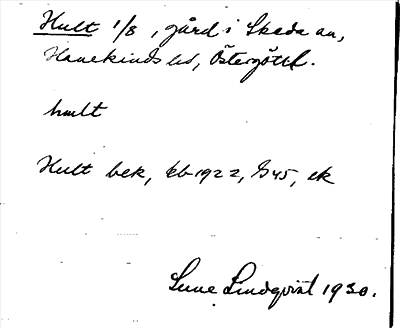 Hult 1/8, gård i Skeda sn,
Hanekinds hd, Östergötl.
hult
Hult bek, kb 1922, G45, ek
Sune Lindqvist 1930.